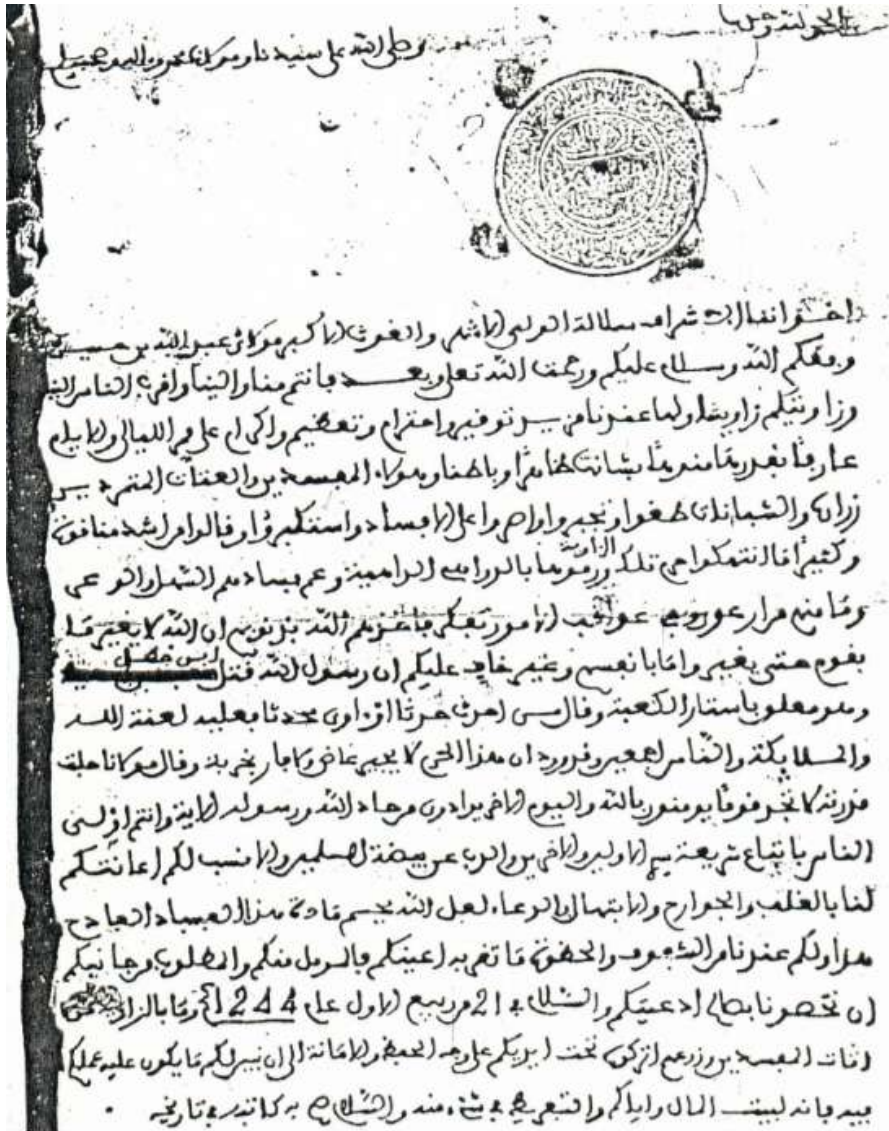 الحمد لله وحده
وصلى الله على سيدنا ومولانا محمد وآله وصحبه وسلم
الشرفاء سلالة الولي الاشهر والغوث الاكبر مولاي عبد الله بن حسين
وفقكم الله وسلام عليكم ورحمت الله تعلى وبعد فانتم منا والينا واقرب الناس الينا
وزاويتكم زاويتنا ولها عندنا مزيد توفير واحترام وتعظيم واكرام على مر الليالي والايام
ظاهرا وباطنا وهولاء المفسدين والعتات المتمردين
زرارة والشبانات طغوا وتجبروا واصروا على الافساد واستكبروا وقالوا من اشد منا قوة
وكثيرا ما انتهكوا حرمة تلك الزاوية ورموها بالدواهي الدامية وعم فسادهم السهل والوعر
ان الله لا يغير ما
بقوم حتى يغيروا ما بانفسهم وغير خاف عليكم ان رسول الله قتل ابن خطل
وهو معلق باستار الكعبة وقال من احدث حدثا او اوى محدثا فعليه لعنة الله
والملايكة والناس اجمعين وقد ورد ان هذا الحرم لا يجير عاصيا ولا فارا بخربة وقال مولانا جلت
قدرته لا تجد قوما يومنون بالله واليوم الاخر يوادون من حاد الله ورسوله الاية وانتم اولى
الناس باتباع شريعة سيد الاولين والاخرين والذب عن بيضة المسلمين والانسب لكم اعانتكم
لنا بالقلب والجوارح والابتهال والدعاء لعل الله يحسم مادة هذا الفساد الفادح
هذا ولكم عندنا من الشفوف والحظوة ما تقر به اعينكم فالمومل منكم والمطلوب من جانبكم
ان تخصونا بصالح ادعيتكم والسلام في 21 من ربيع الاول عام 1244 وما بالزاوية من
اثاث المفسدين وزرعهم اتركوه تحت ايديكم على وجه الحفظ والامانة الى ان نبين لكم ما يكون عليه عملكم
فيه فانه لبيت المال واياكم والتفريط في شيء منه والسلام صح به كاتبه في تاريخه